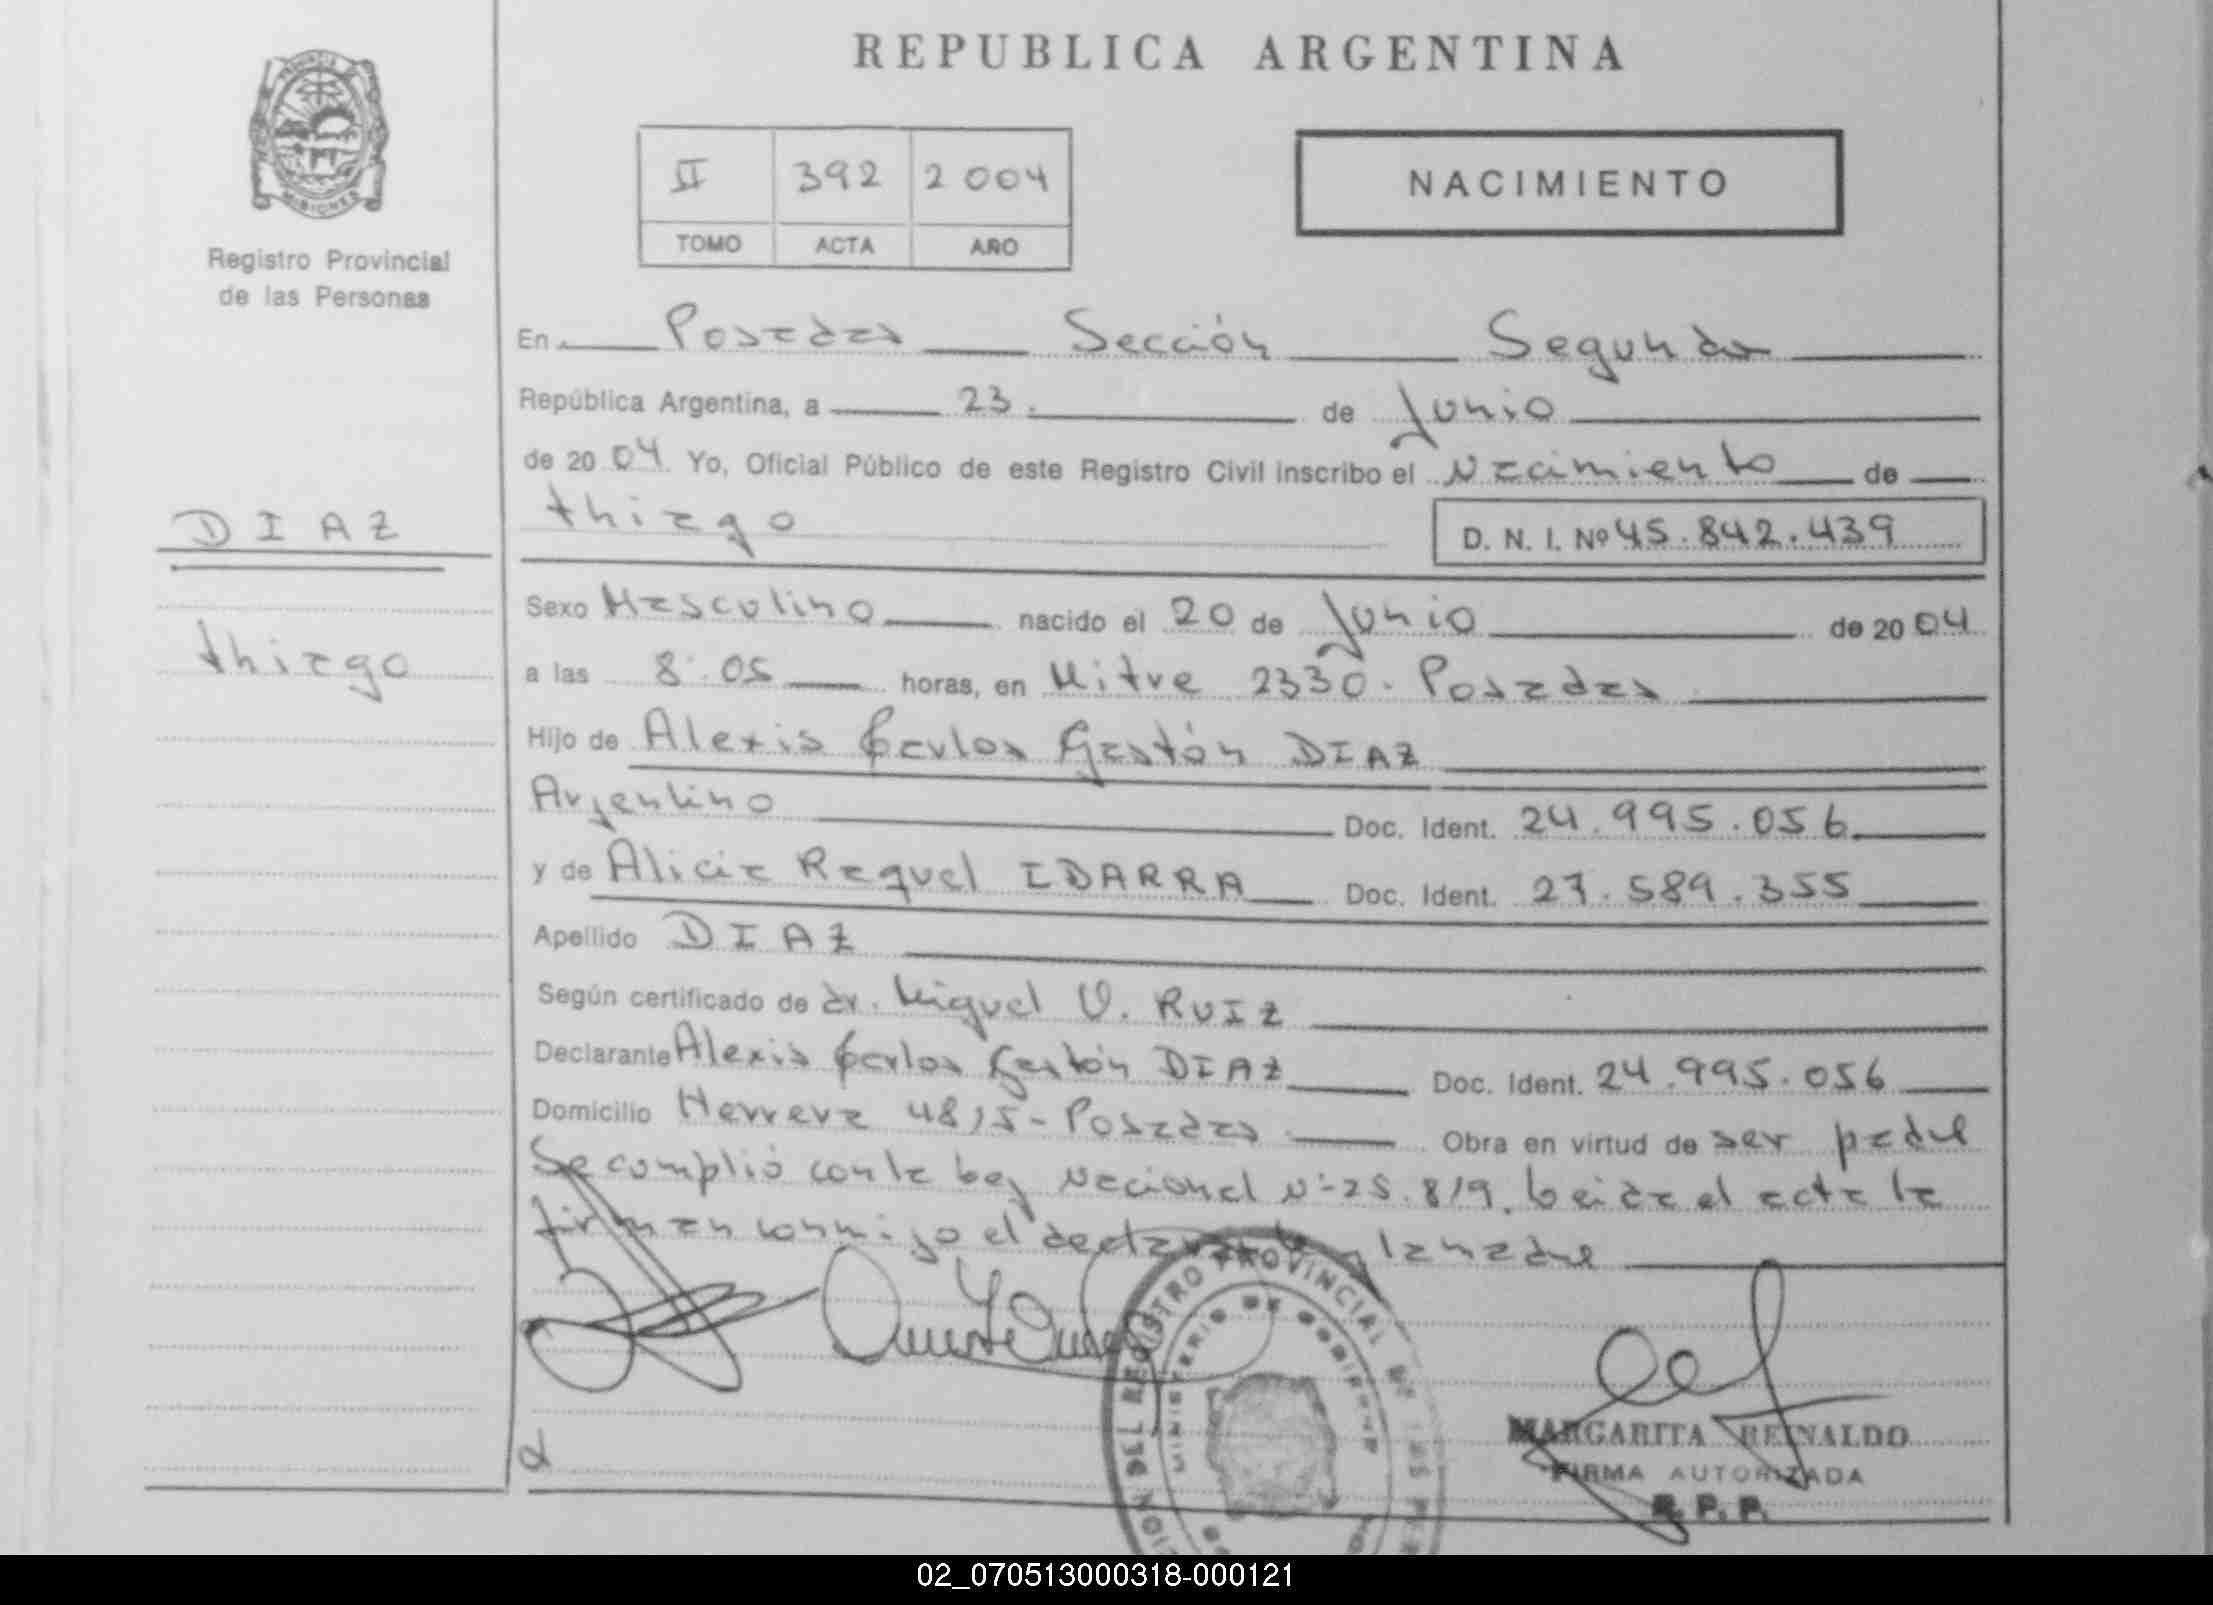 REPUBLICA ARGENTINA
PROVINCIA
MISIONES
Registro Provincial
de las Personas
II 392 2004
TOMO ACTA AÑO
NACIMIENTO
En Posadas Sección Segunda
República Argentina, a 23. de Junio
de 2004 Yo, Oficial Público de este Registro Civil inscribo el Nacimiento de
thiago D. N. I. Nº 45.842.439
DIAZ
thiago
Sexo Masculino nacido el 20 de Junio de 2004
a las 8:05 horas, en Mitre 2330. Posadas
Hijo de Alexis Carlos Gastón DIAZ
Argentino Doc. Ident. 24.995.056
y de Alicia Raquel IBARRA Doc. Ident. 27.589.355
Apellido DIAZ
Según certificado de dr. Miguel V. RUIZ
Declarante Alexis Carlos Gastón DIAZ Doc. Ident. 24.995.056
Domicilio Herrera 4815-Posadas Obra en virtud de ser padre
Se cumplió con la ley Nacional Nº 25.819. Leida el acta la
firman conmigo el declarante y la madre
DEL REGISTRO PROVINCIAL DE LAS
MINISTERIO DE GOBIERNO
MARGARITA REINALDO
FIRMA AUTORIZADA
R. P. P.
02_070513000318-000121